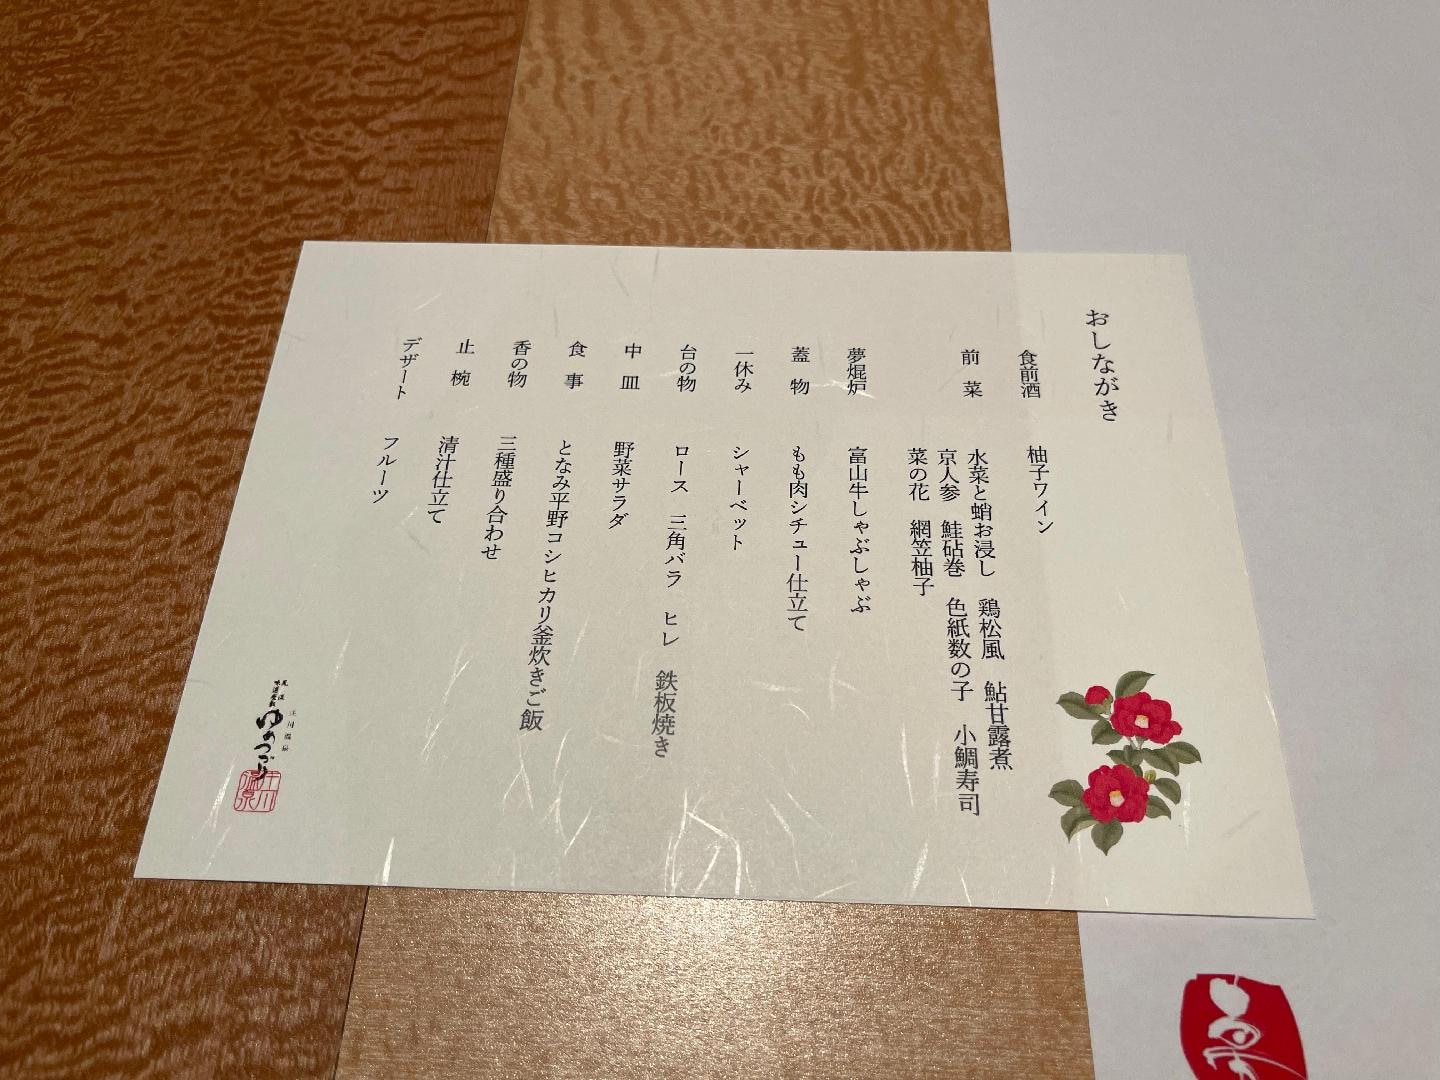 おしながき
食前酒　柚子ワイン
前菜　水菜と蛸お浸し　鶏松風　鮎甘露煮
京人参　鮭砧巻　色紙数の子　小鯛寿司
菜の花　網笠柚子
夢焜炉　富山牛しゃぶしゃぶ
蓋物　もも肉シチュー仕立て
一休み　シャーベット
台の物　ロース　三角バラ　ヒレ　鉄板焼き
中皿　野菜サラダ
食事　となみ平野コシヒカリ釜炊きご飯
香の物　三種盛り合わせ
止椀　清汁仕立て
デザート　フルーツ
庄川温泉
ゆめつづり
夢